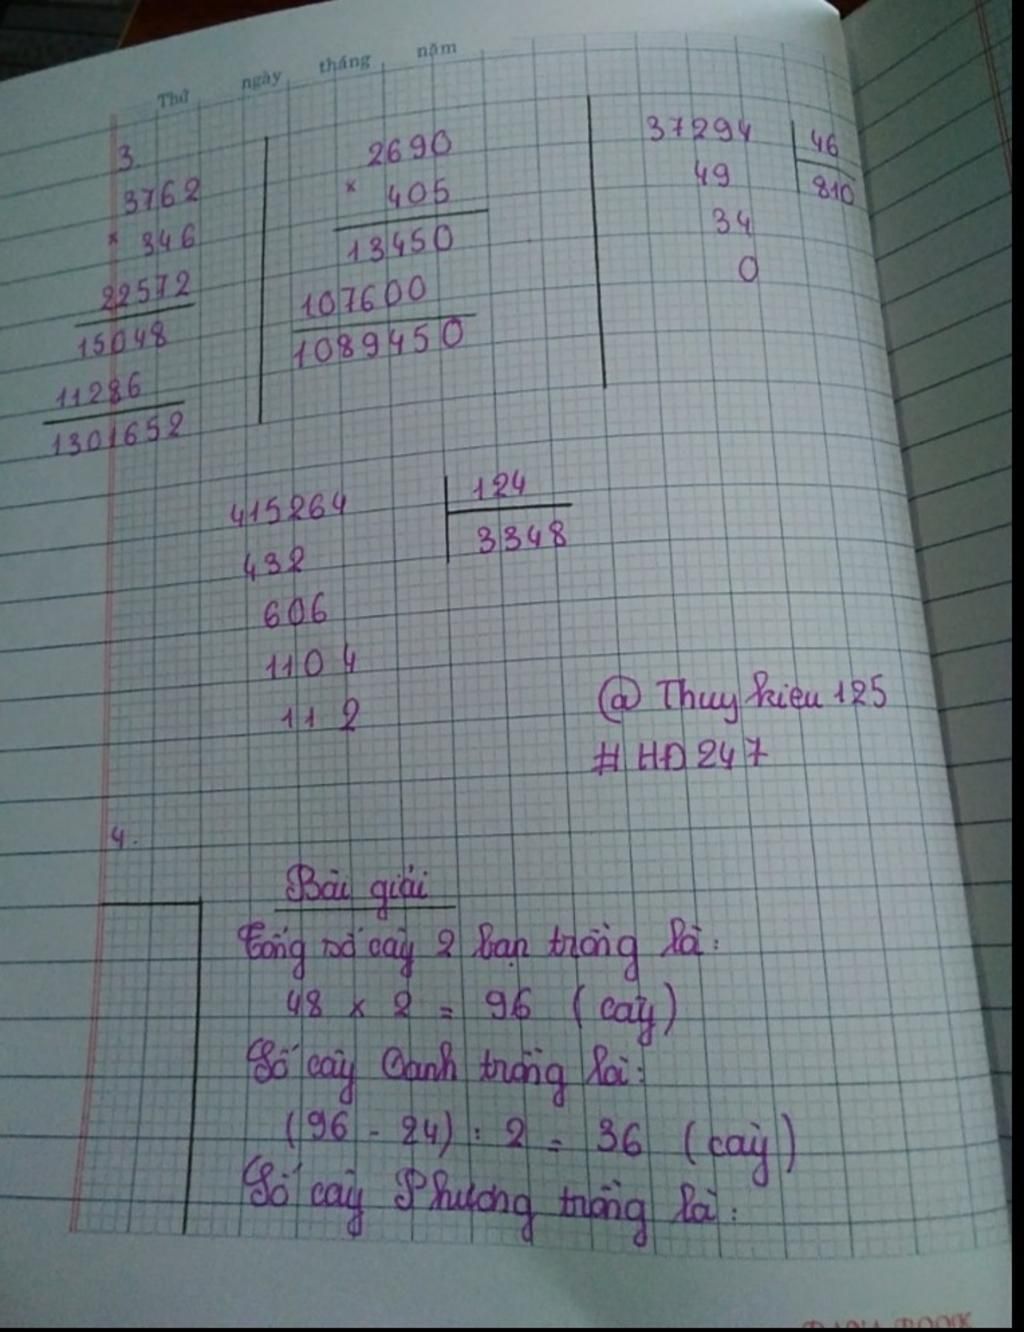 Thứ ngày tháng năm
3.
3762
× 346
22572
15048
11286
1301652
2690
× 405
13450
107600
1089450
37294 46
49 810
34
0
415264 124
432 3348
606
1104
112
@ Thuy kieu 125
# HĐ 247
4.
Bài giải
Tổng số cây 2 bạn trồng là:
48 × 2 = 96 (cây)
Số cây Oanh trồng là:
(96 - 24) : 2 = 36 (cây)
Số cây Phương trồng là: